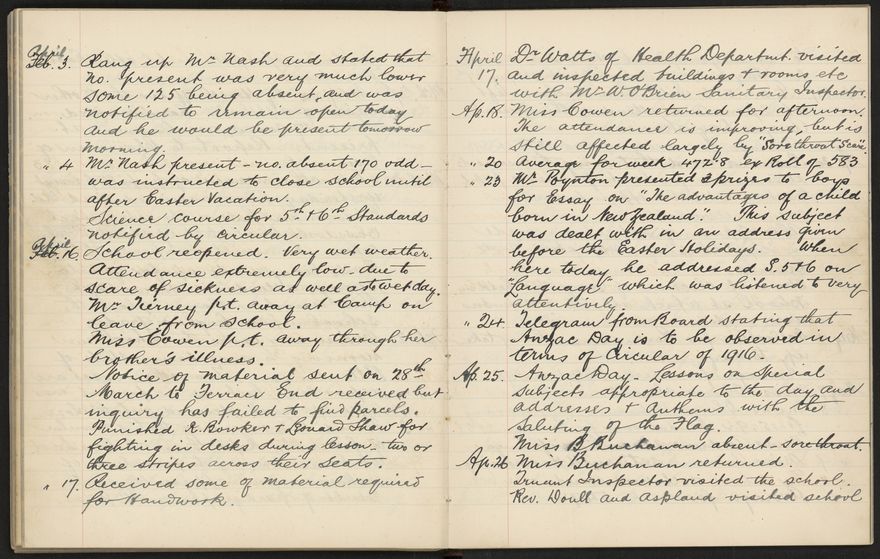 April 3. Rang up Mr Nash and stated that
no. present was very much lower
some 125 being absent and was
notified to remain open today
and he would be present tomorrow
morning.
" 4 Mr Nash present - no. absent 170 odd -
was instructed to close school until
after Easter Vacation.
Science course for 5th & 6th Standards
notified by circular.
April 16. School reopened. Very wet weather.
Attendance extremely low due to
scare of sickness as well as to wet day.
Mr Tierney p.t. away at Camp on
leave from School.
Miss Cowen p.t. away through her
brother's illness.
Notice of material sent on 28th
March to Terrace End received but
inquiry has failed to find parcels.
Punished R. Bowker & Leonard Shaw for
fighting in desks during lesson - two or
three stripes across their seats.
" 17. Received some of material required
for Handwork.
April Dr Watts of Health Departmt. visited
17. and inspected buildings & rooms etc
with Mr W. O'Brien Sanitary Inspector.
Ap. 18. Miss Cowen returned for afternoon.
The attendance is improving, but is
still affected largely by "Sore throat Scare.
" 20 Average for week 472.8 ex Roll of 583
" 23 Mr Poynton presented 2 prizes to boys
for Essay on "The advantages of a child
born in New Zealand." This subject
was dealt with in an address given
before the Easter Holidays. When
here today he addressed S.5 & 6 on
"Language" which was listened to very
attentively.
" 24. Telegram from Board stating that
Anzac Day is to be observed in
terms of Circular of 1916.
Ap. 25. Anzac Day. Lessons on special
subjects appropriate to the day and
addresses & Anthems with the
Saluting of the Flag.
Miss B Buchanan absent - sore throat.
Ap. 26 Miss Buchanan returned.
Truant Inspector visited the school.
Rev. Doull and Aspland visited school